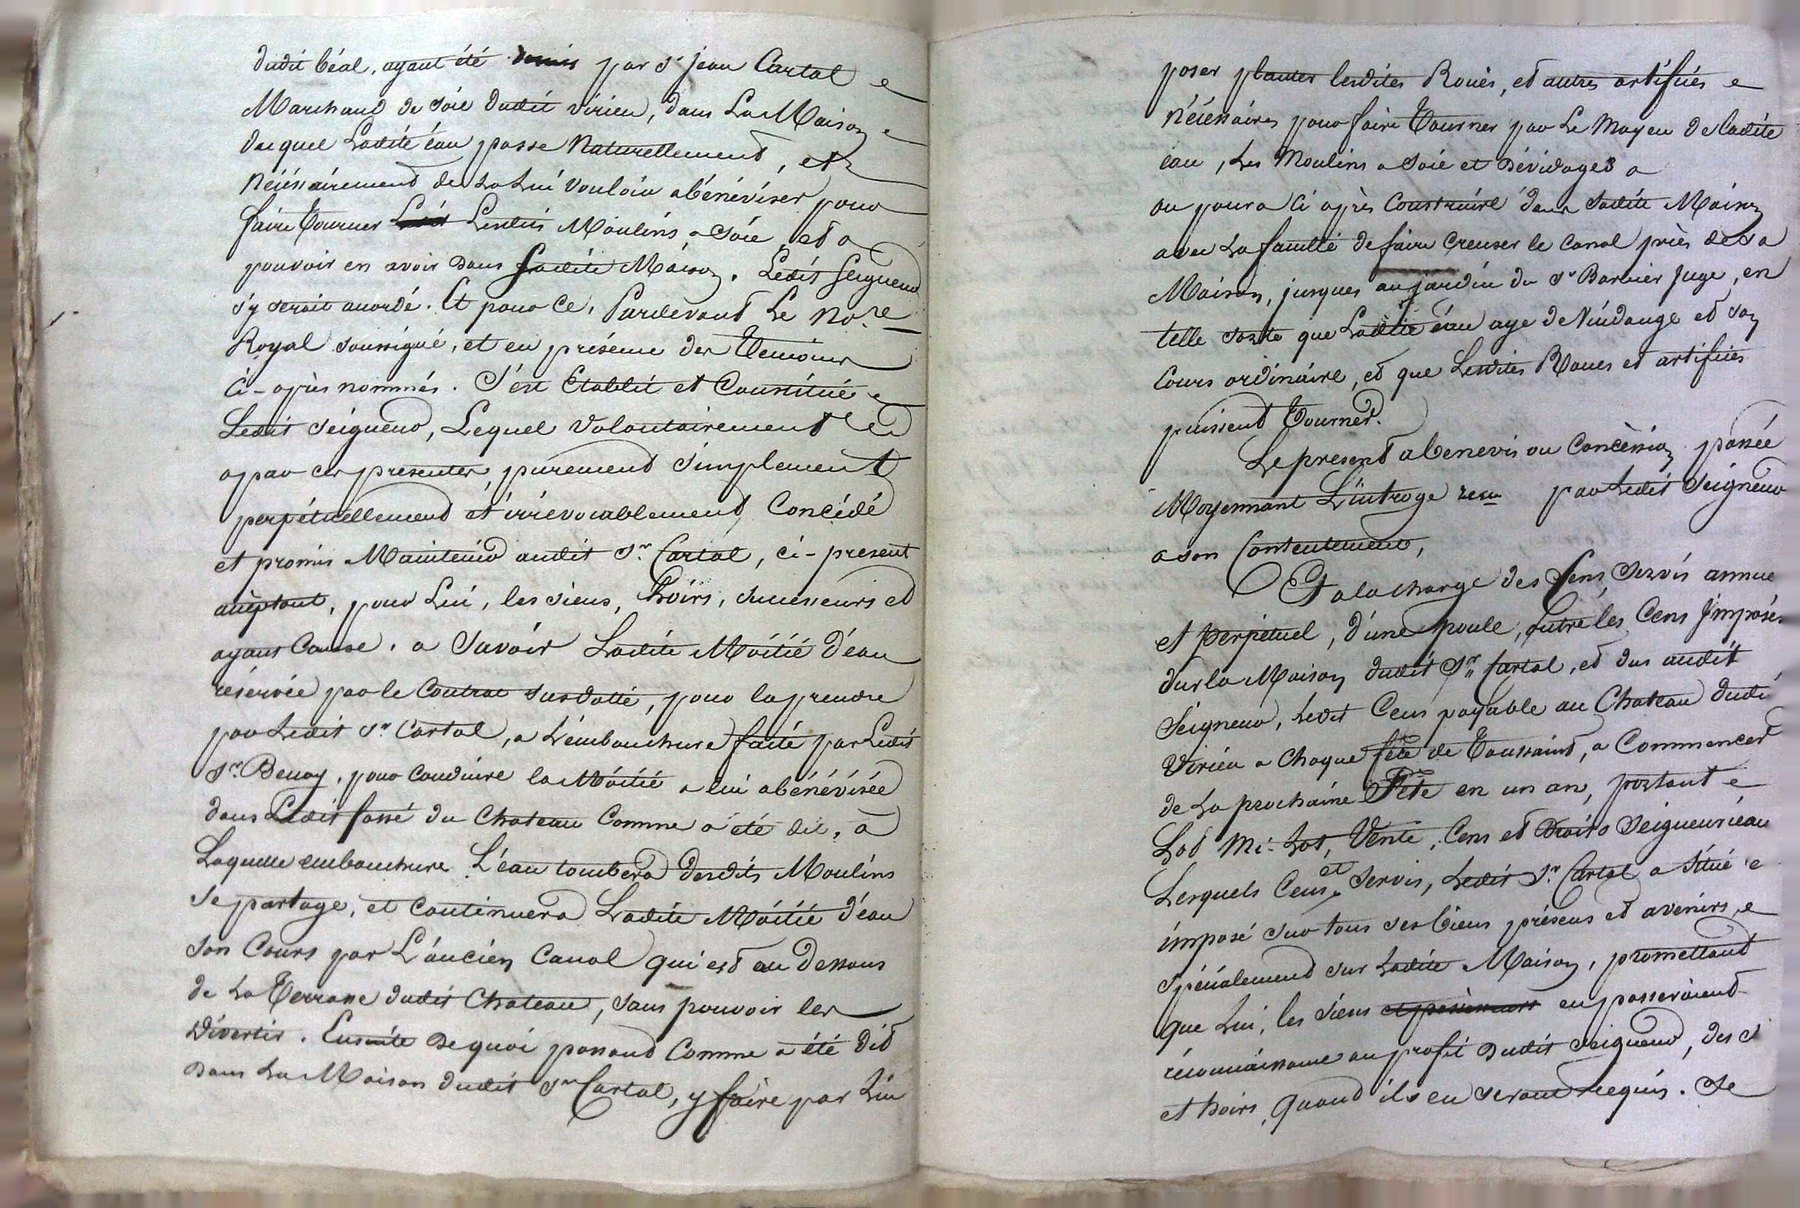 dudit béal, ayant été par sr jean Cartal
Marchand de soie dudit virieu, dans La Maison
duquel Ladite éau passe Naturellement, et
Nécéssairement de La Lui vouloir abénéviser pour
faire Tourner Lesdits Moulins a soie, et a
pouvoir en avoir dans sadite Maison. Ledit seigneur
s'y seroit accordé. Et pour ce, Pardevant Le Nore
Royal soussigné, et en présence des Temoins
ci-après nommés. s'est Etablit et Constitué
Ledit seigneur, Lequel volontairement
a par ces presentes, purement simplement
perpétuellement et irrévocablement Concédé
et promis Maintenir audit sr. Cartal, ci-present
acéptant, pour Lui, les siens, hoirs, successeurs et
ayans Cause. a Savoir Ladite Moitié d'éau
réservée par le Contrat susdatté, pour la prendre
par Ledit sr Cartal, a L'embouchure faite par Ledit
sr. Benoy, pour conduire la Moitié a lui abénévisée
dans Ledit fossé du Chateau Comme a été dit, à
Laquelle embouchure L'éau tombera desdits Moulins
se partage, et continuera Ladite Moitié d'éau
son Cours par L'ancien Canal qui est au dessous
de La Terrasse dudit Chateau, sans pouvoir les
divertir. Ensuite de quoi passant Comme a été dit
dans La Maison dudit sr Cartal, y faire par Lui
poser planter lesdites Roues, et autres artifices
Nécéssaires pour faire Tourner par Le Moyen de ladite
éau, Les Moulins a soie et dévidages a
ou poura ci après construire dans sadite Maison
avec La faculté de faire creuser le Canal près de sa
Maison, jusques au jardin du sr Barnier juge, en
telle sorte que Ladite éau aye de Vuidange et son
Cours ordinaire, et que Lesdites Roues et artifices
puissent Tourner.
Le present abenevis ou Concéssion passée
Moyennant L'introge recu par Ledit Seigneur
a son Contentement,
Et a la charge des Cens servis annuel
et perpetuel, d'une poule, outre les Cens imposés
sur la Maison dudit sr Cartal, et dus audit
Seigneur, Ledit Cens payable au Chateau dudit
Virieu a chaque fête de Toussaint, a Commencer
de La prochaine Fête en un an, portant
Lod Mi-Lot, Vente, Cens et droits seigneuriaux
Lesquels Cens et servis, Ledit sr Cartal a situé
imposé sur tous ses biens présens et avenirs,
spécialement sur Ladite Maison, promettant
que Lui, les siens en passeroient
réconnaissance au profit dudit seigneur, des s
et hoirs, quand ils en seront requis. Se